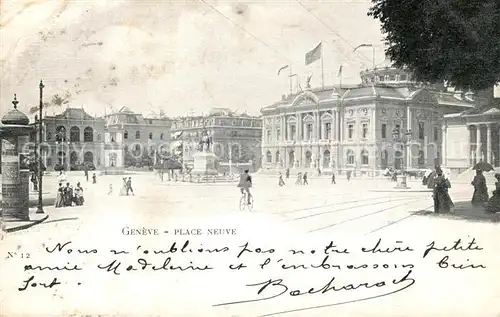 GENÈVE - PLACE NEUVE
N° 12
Nous n'oublions pas notre chère petite
amie Madeleine et l'embrassons bien
fort.
Bacharach